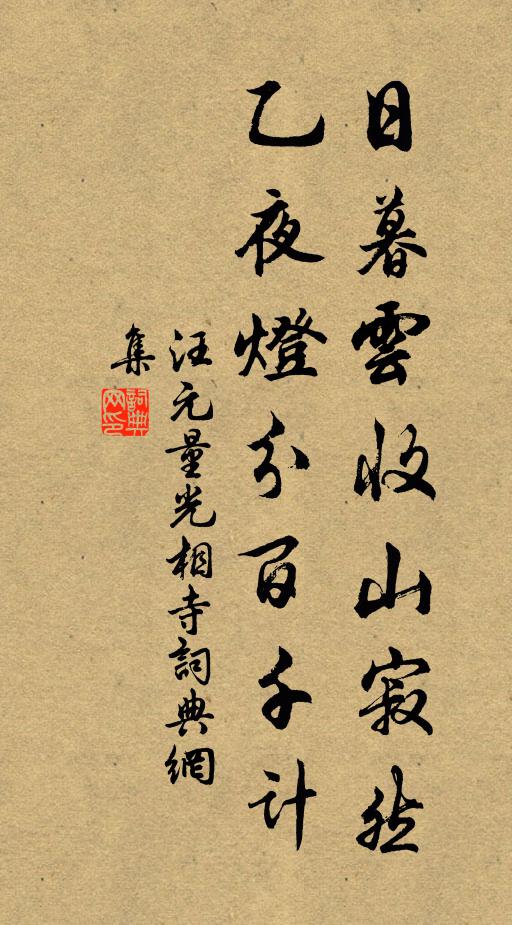 日暮雲收山寂然
乙夜燈分百千計
汪元量光相寺詞典網
集
詞典網印